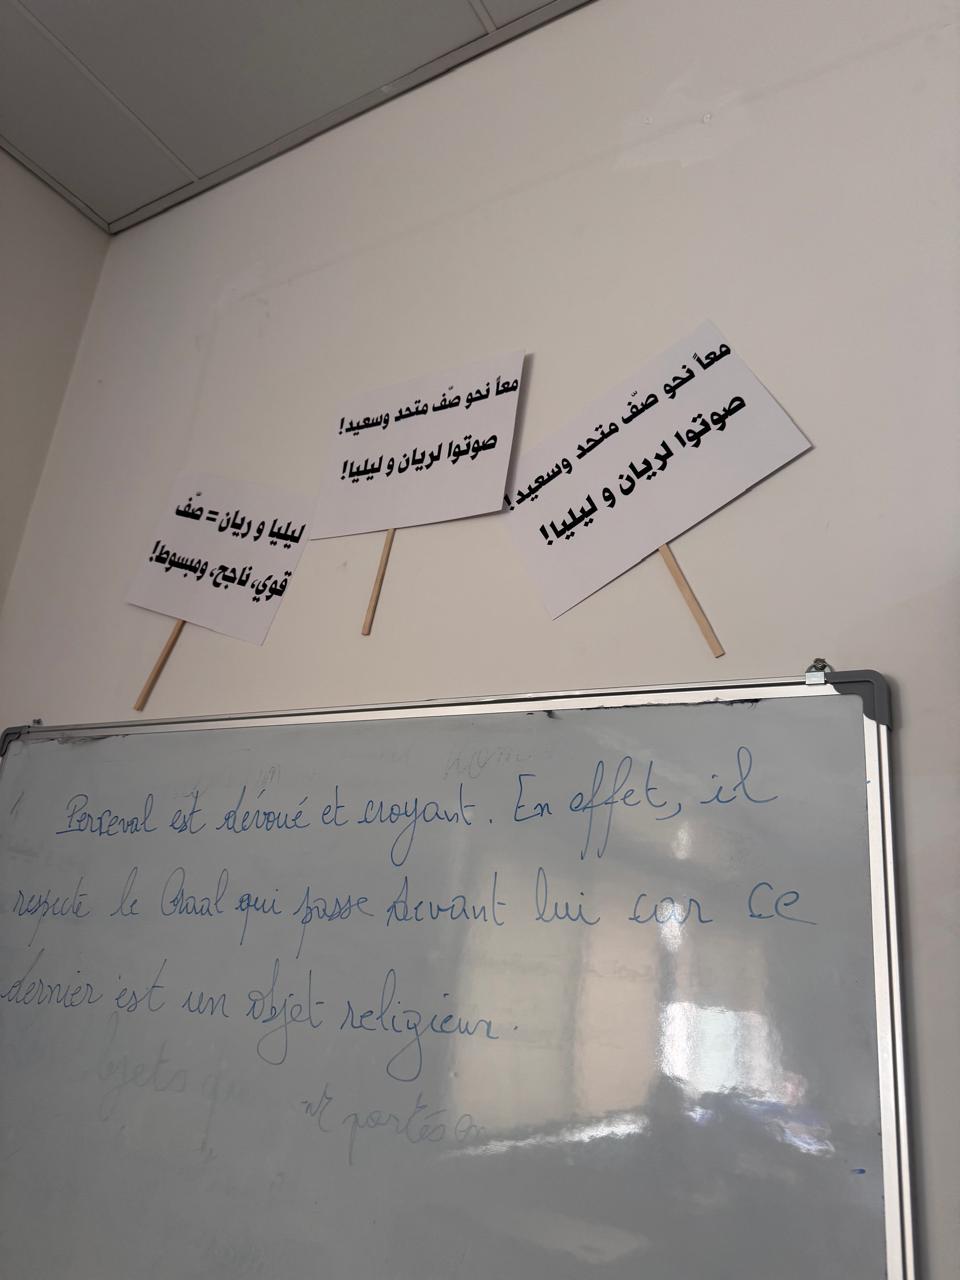 معاً نحو صّف متحد وسعيد!
صوتوا لريان و ليليا!
معاً نحو صّف متحد وسعيد!
صوتوا لريان و ليليا!
ليليا و ريان = صّف
قوي، ناجح، ومبسوط!
Perseval est dévoué et croyant. En effet, il
respecte le Graal qui passe devant lui car ce
dernier est un objet religieux.